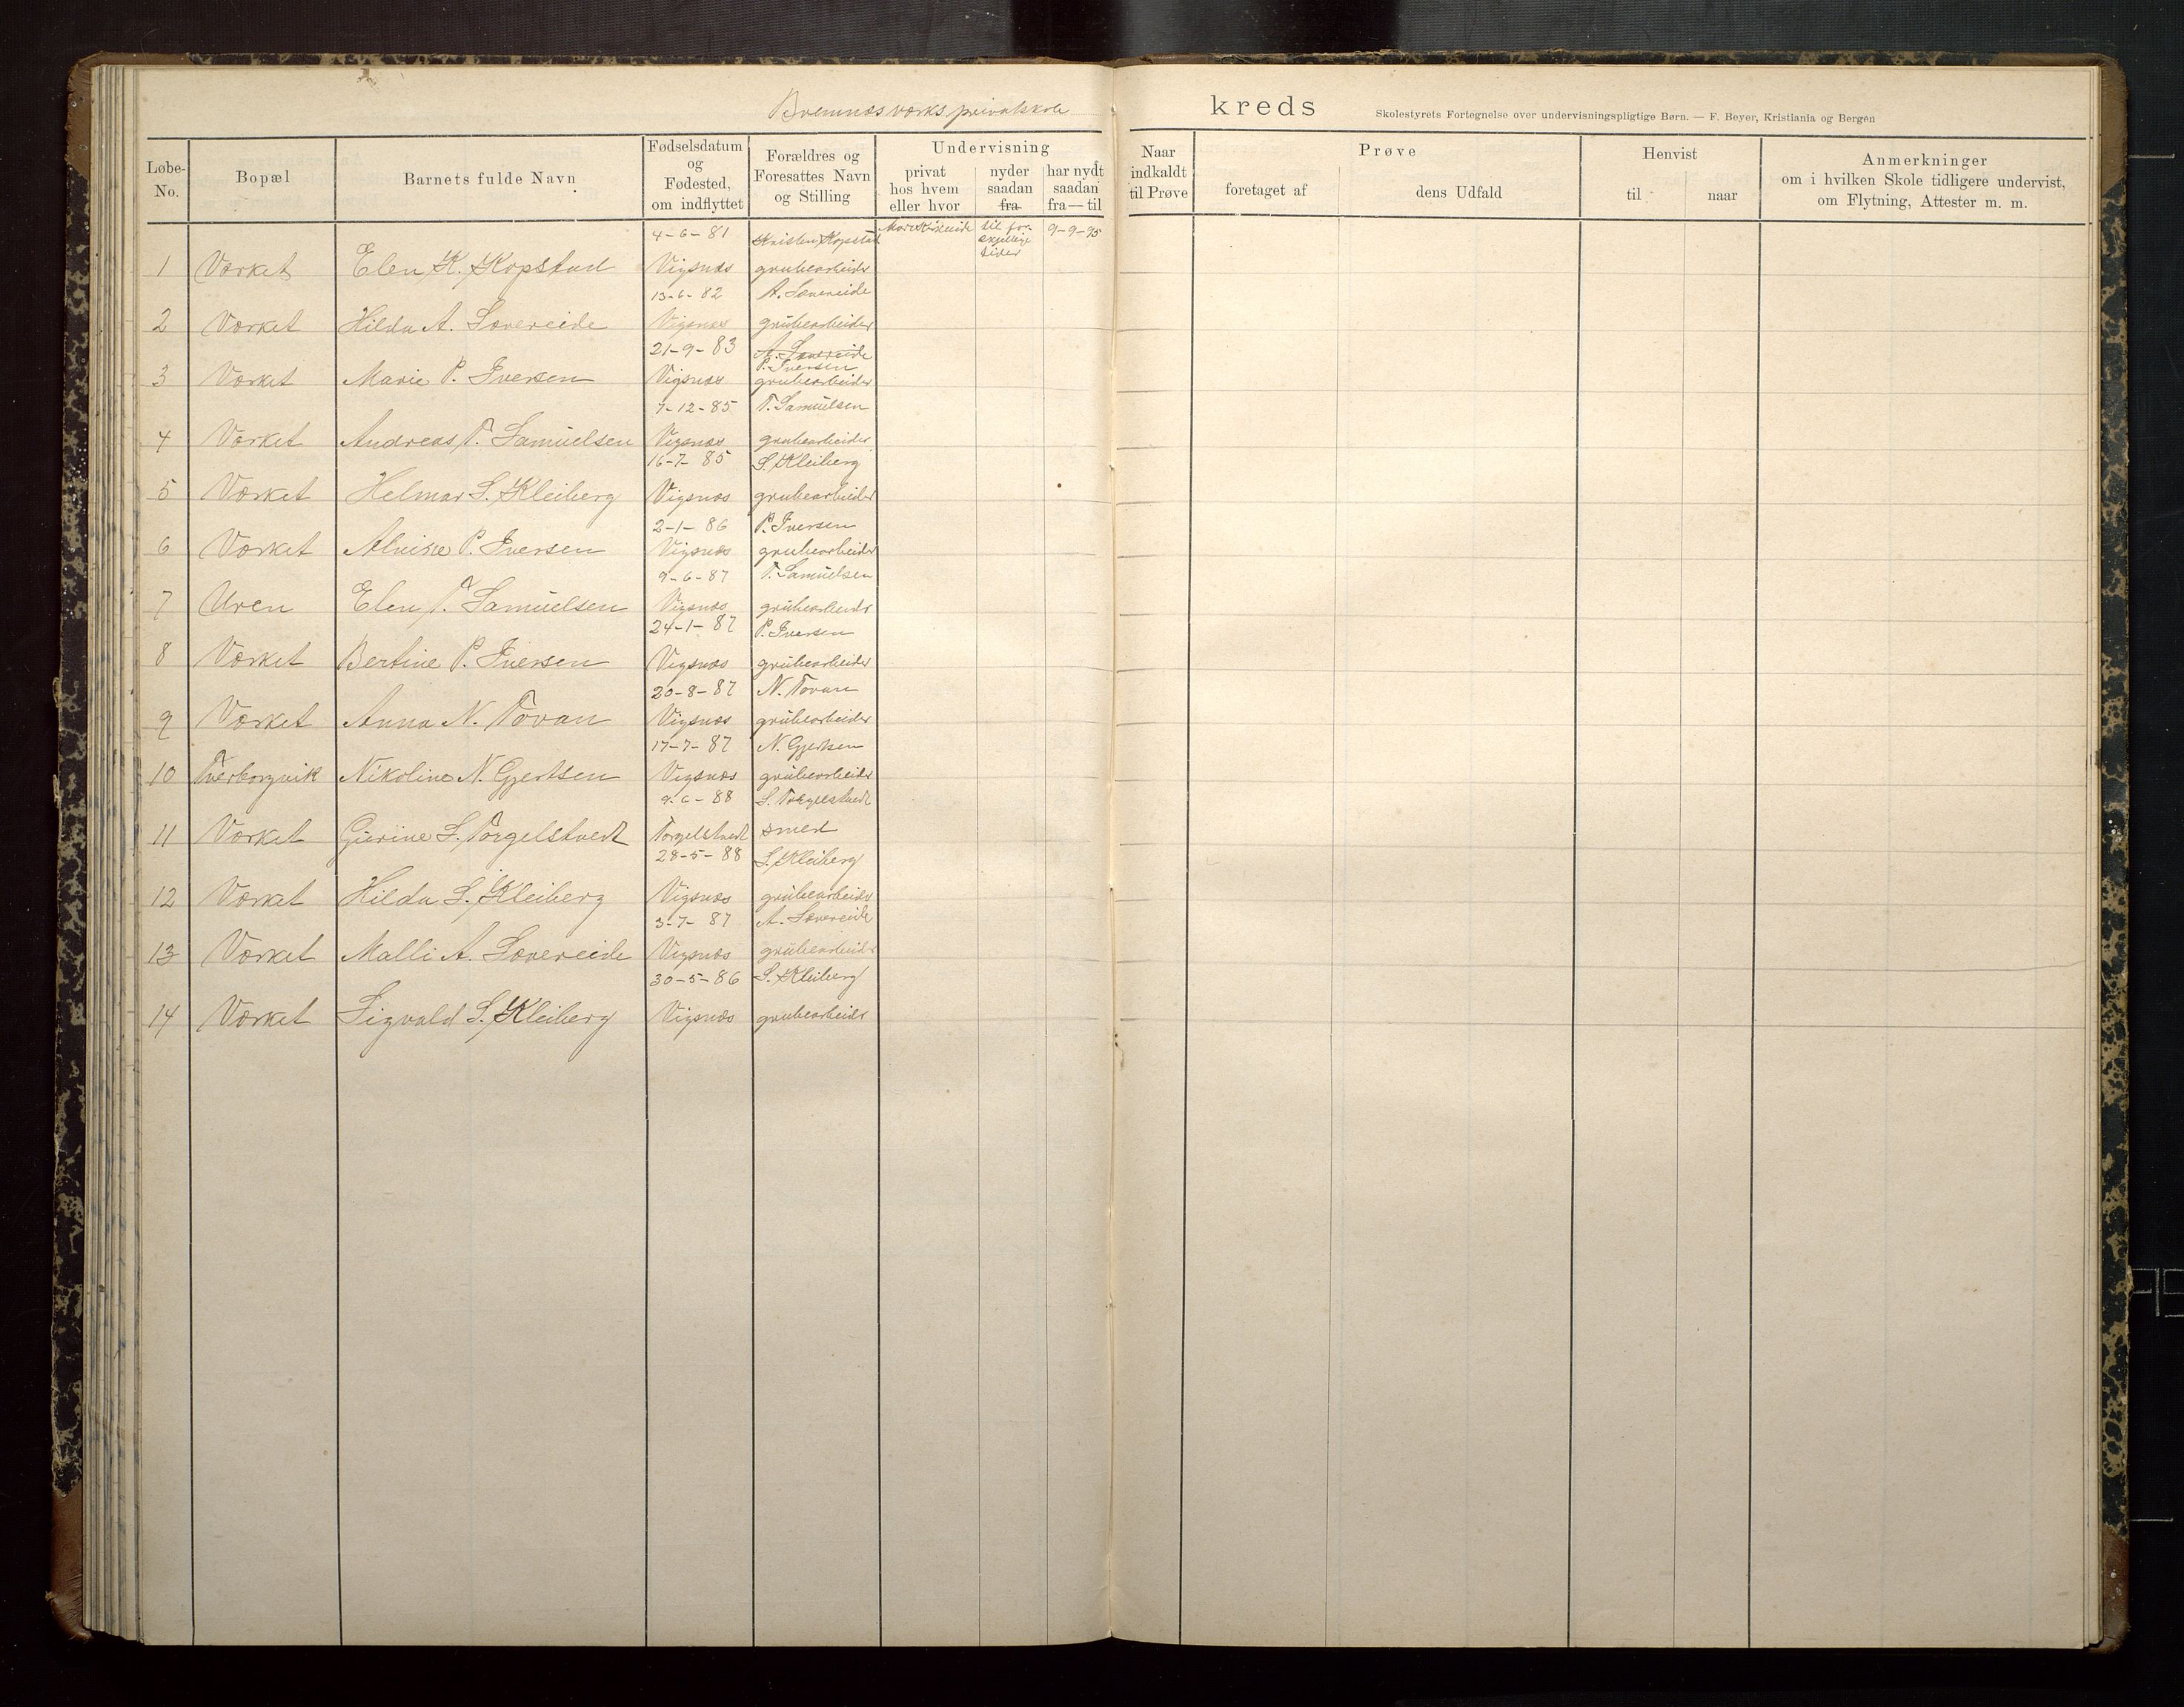 Bremnæs værks privatskole kreds Skolestyrets Fortegnelse over undervisningspligtige Børn. — F. Beyer, Kristiania og Bergen
Løbe-No. Bopæl Barnets fulde Navn Fødselsdatum og Fødested, om indflyttet Forældres og Foresattes Navn og Stilling Undervisning privat hos hvem eller hvor nyder saadan fra har nydt saadan fra—til Naar indkaldt til Prøve Prøve foretaget af dens Udfald Henvist til naar Anmerkninger om i hvilken Skole tidligere undervist, om Flytning, Attester m. m.
4-6-81 Kristen Kopstad til for-skjellige tider 9-9-95
1 Værket Elen K. Kopstad Vigsnæs grubearbeider
13-6-82 A. Løvereide
2 Værket Hilda A. Løvereide Vigsnæs grubearbeider
21-9-83 A. Løvereide
P. Iversen
3 Værket Marie P. Iversen Vigsnæs grubearbeider
7-12-85 T. Samuelsen
4 Værket Andreas T. Samuelsen Vigsnæs grubearbeider
16-7-85 S. Kleiberg
5 Værket Helmar S. Kleiberg Vigsnæs grubearbeider
2-1-86 P. Iversen
6 Værket P. Iversen Vigsnæs grubearbeider
9-6-87 T. Samuelsen
7 Uren Elen T. Samuelsen Vigsnæs grubearbeider
24-1-87 P. Iversen
8 Værket Bertine P. Iversen Vigsnæs grubearbeider
20-8-87 N. Tovan
9 Værket Anna N. Tovan Vigsnæs grubearbeider
17-7-87 N. Gjertsen
10 Tverborgvik Nikoline N. Gjertsen Vigsnæs grubearbeider
9-6-88 S. Torgelstvedt
11 Værket Gurine S. Torgelstvedt Torgelstvedt smed
28-5-88 S. Kleiberg
12 Værket Hilda S. Kleiberg Vigsnæs grubearbeider
3-7-87 A. Løvereide
13 Værket Malli A. Løvereide Vigsnæs grubearbeider
30-5-86 S. Kleiberg
14 Værket Sigvald S. Kleiberg Vigsnæs grubearbeider